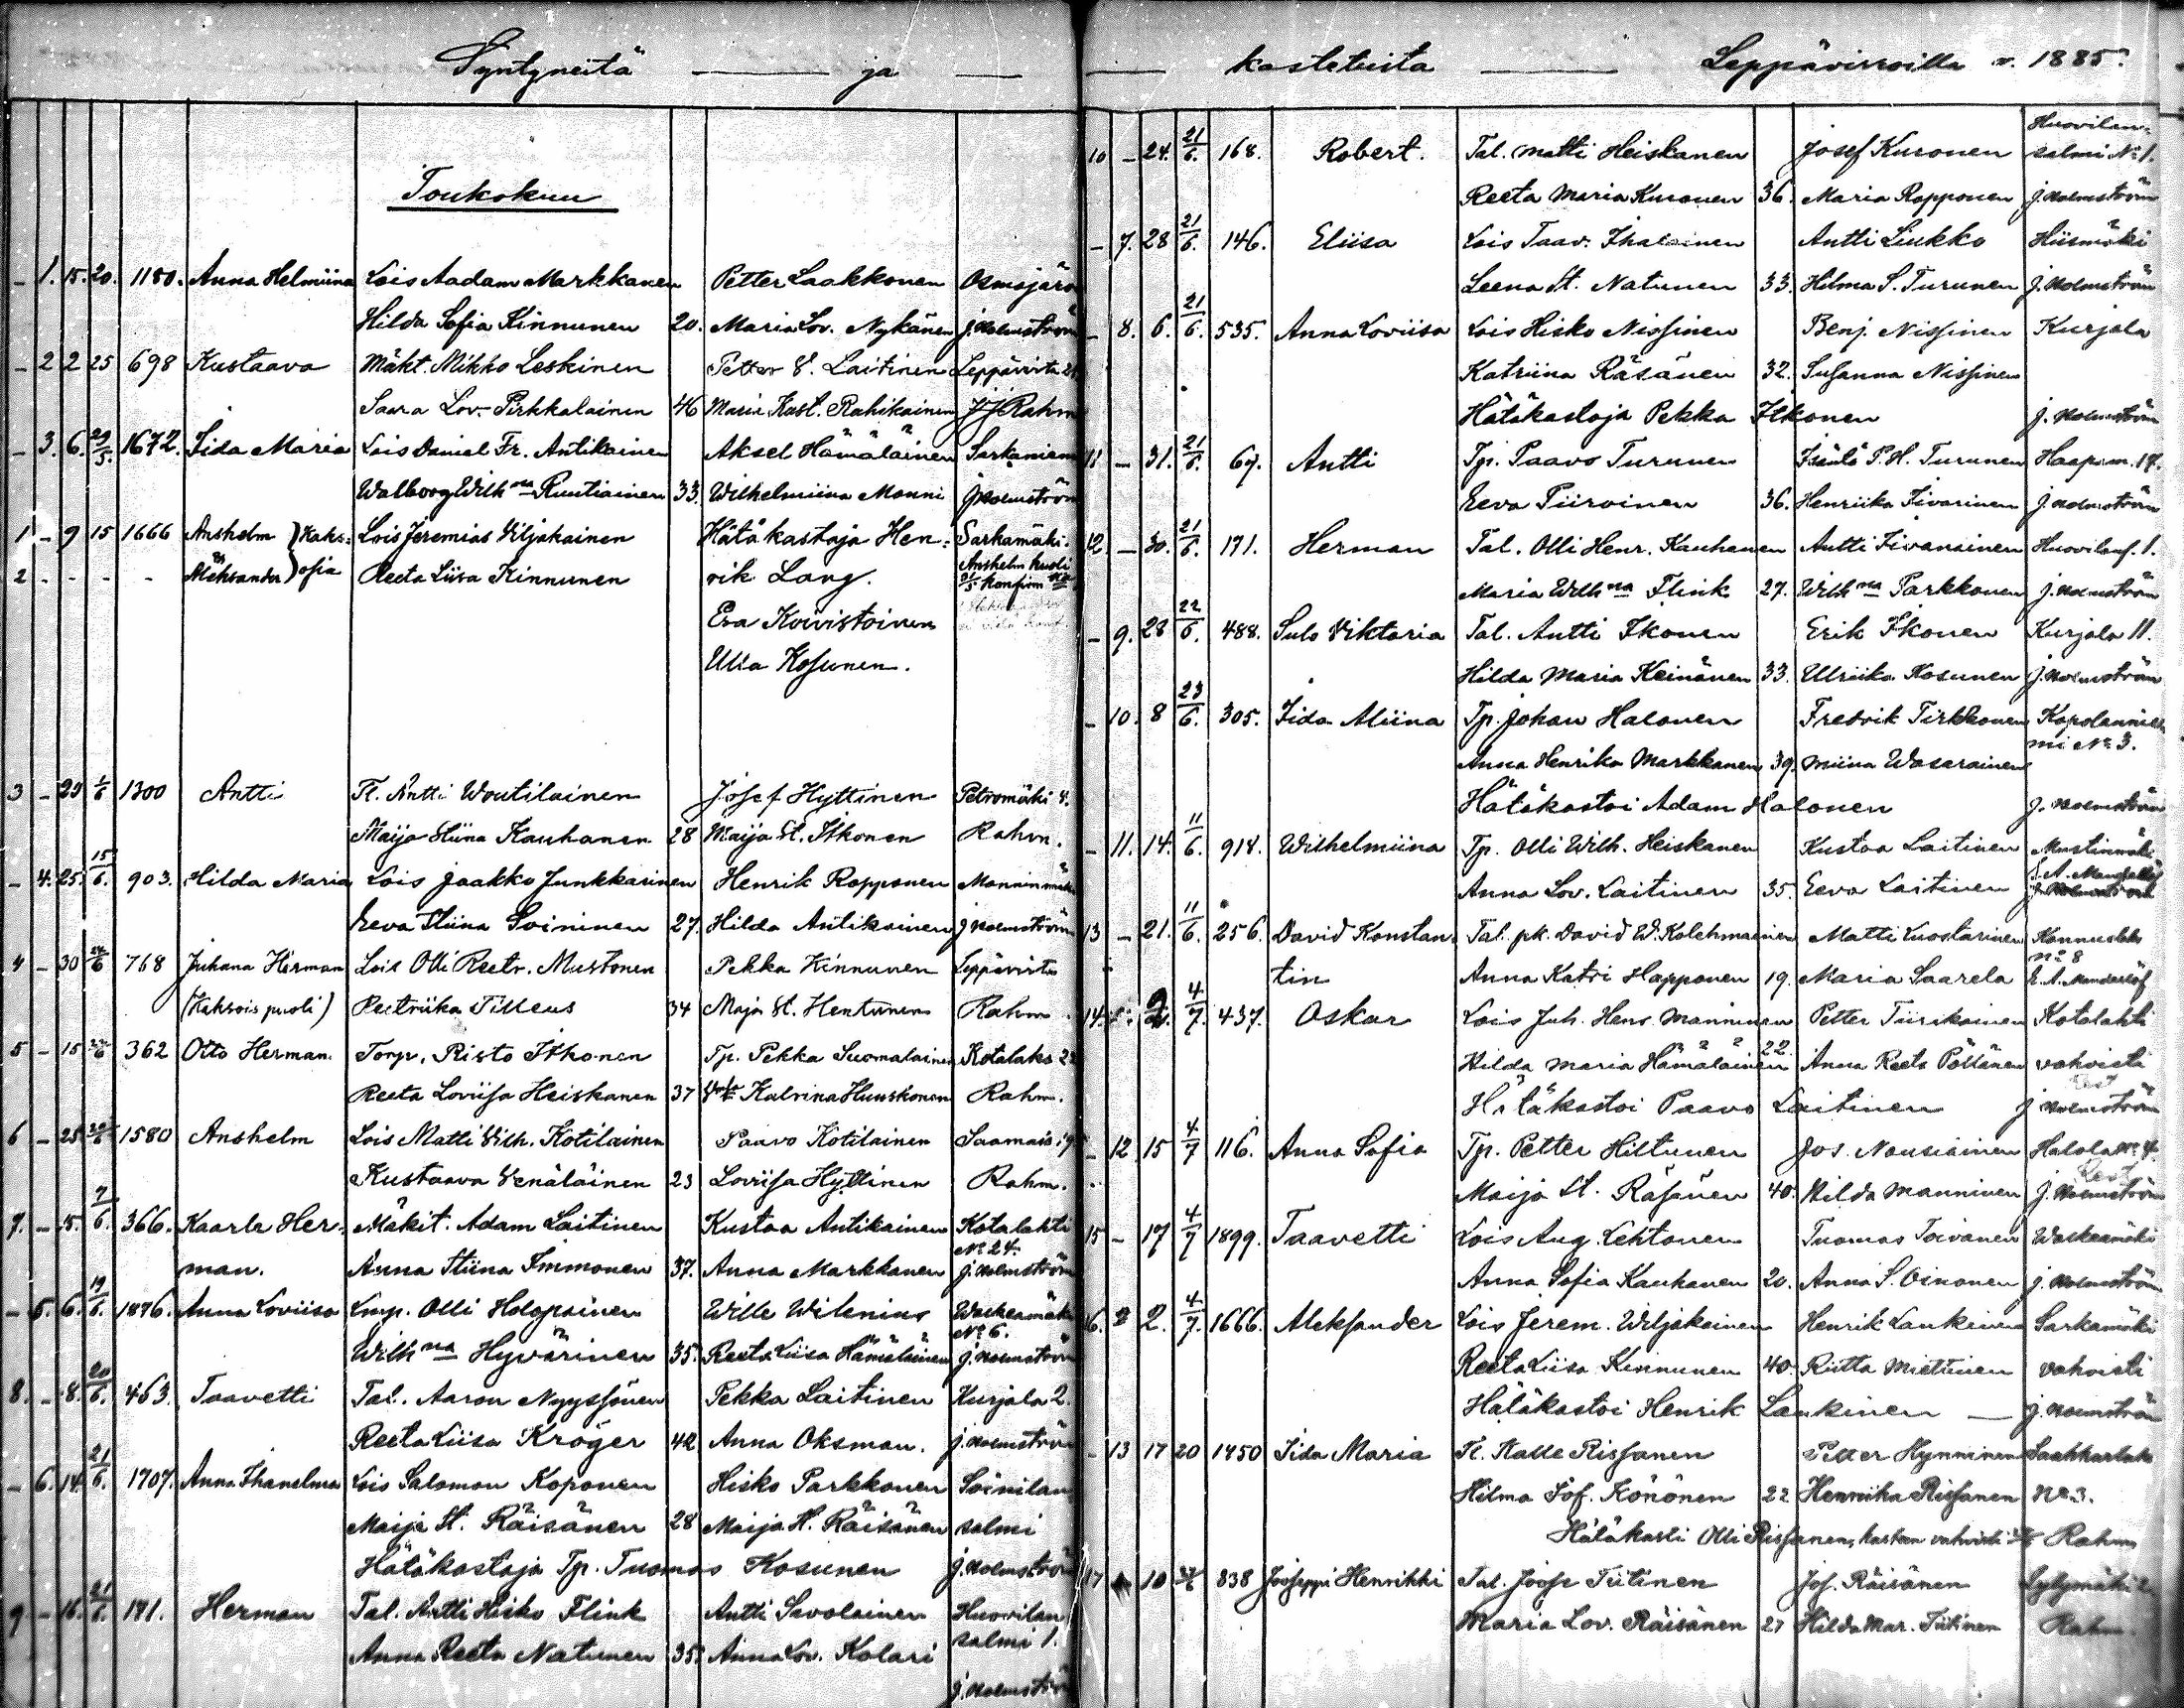 Syntyneitä — ja —
Toukokuu
- 1. 15. 20. 1180. Anna Helmiina Lois Aadam Markkanen Petter Laakkonen Osmajärvi
Hilda Sofia Kinnunen 20. Maria Lov. Nykänen J. Holmström
- 2 2 25 698 Kustaava Mäkt. Mikko Leskinen Petter V. Laitinen Leppävirta
Saara Lov. Pirkkalainen 46 Maria Kust. Rahikainen J.J. Rahm
- 3. 6. 29/5. 1672. Iida Maria Lois Daniel Fr. Antikainen Aksel Hämäläinen Sarkaniemi
Walborg Wilhna Ruutiainen 33. Wilhelmiina Monni J. Holmström
1 - 9 15 1666 Anshelm } Kaks= Lois Jeremias Viljakainen Hätäkastaja Hen= Sarkamäki.
2 - - - - Aleksander } osia Reeta Liisa Kinnunen rik Lang. Anshelm kuoli
Eva Koivistoinen
Ulla Kosunen.
3 - 29 1/6 1300 Antti Tl. Antti Woutilainen Josef Hyttinen Petromäki 4.
Maija Stiina Kauhanen 28 Maija St. Itkonen Rahm.
- 4. 25. 15/6. 903. Hilda Maria Lois Jaakko Junkkarinen Henrik Ropponen Monninmäki
Eeva Stiina Soininen 27. Hilda Antikainen J. Holmström
4 - 30 24/6 768 Juhana Herman Lois Olli Reetr. Mustonen Pekka Kinnunen Leppävirta
(Kaksois puoli) Peetriika Tilleus 34 Maja St. Hentunen Rahm.
5 - 15 362 Otto Herman. Torp. Risto Itkonen Tp. Pekka Suomalainen Kotalaks
Reeta Loviisa Heiskanen 37 Katrina Huuskonen Rahm.
6 - 25 1580 Anshelm Lois Matti Vilh. Kotilainen Paavo Kotilainen Saamais. 19
Kustaava Venäläinen 23 Loviisa Hyttinen Rahm.
7. - 5. 7/6. 366. Kaarle Her= Mäkit. Adam Laitinen Kustaa Antikainen Kotalahti No 24.
man. Anna Stiina Immonen 37. Anna Markkanen J. Holmström
- 5. 6. 19/6. 1876. Anna Loviisa Lmp. Olli Holopainen Wille Wilenius Waskeamäki No 6.
Wilhna Hyvärinen 35. Reeta Liisa Hämäläinen J. Holmström
8. - 8. 20/6. 463. Taavetti Tal. Aaron Nyyssönen Pekka Laitinen Kurjala 2.
Reeta Liisa Kröger 42 Anna Oksman. J. Holmström
- 6. 14. 21/6. 1707. Anna Ihanelma Lois Salomon Koponen Hisko Parkkonen Soinilan
Maija St. Räisänen 28 Maija H. Räisänen salmi
Hätäkastaja Tp. Tuomas Kosunen J. Holmström
9 - 16. 21/6. 171. Herman Tal. Antti Hisko Flink Antti Savolainen Huovilan
Anna Reeta Natunen 35. Anna Lov. Kolari salmi 1.
J. Holmström
— kastetuita — Leppävirroilla v. 1885.
10 - 24. 21/6. 168. Robert. Tal. Matti Heiskanen Josef Kuronen Huovilan= salmi No 1.
Reeta Maria Kuronen 36. Maria Ropponen J. Holmström
- 7. 28 21/6. 146. Eliisa Lois Taav. Ihalainen Antti Liukko Hiismäki
Leena St. Natunen 33. Hilma S. Turunen J. Holmström
- 8. 6. 21/6. 535. Anna Loviisa Lois Hisko Nissinen Benj. Nissinen Kurjala
Katriina Räsänen 32. Susanna Nissinen
Hätäkastaja Pekka Itkonen J. Holmström
11 - 31. 21/6. 67. Antti Tp. Paavo Turunen P. H. Turunen Haapam. 17.
Eeva Tiirainen 36. Henriika Iivarinen J. Holmström
12. - 30. 21/6. 171. Herman Tal. Olli Henr. Kauhanen Antti Iivanainen Huovilans. 1.
Maria Wilhna Flink 27. Wilhna Parkkonen J. Holmström
- 9. 28 22/6. 488. Sulo Viktoria Tal. Antti Ikonen Erik Ikonen Kurjala 11.
Hilda Maria Keinänen 33. Ulriika Kosunen J. Holmström
- 10. 8 23/6. 305. Iida Aliina Tp. Johan Halonen Fredrik Tirkkonen
mi No 3.
Anna Henrika Markkanen 39. Miina Wasarainen
Hätäkastoi Adam Halonen J. Holmström
- 11. 14. 11/6. 914. Wilhelmiina Tp. Olli Wilh. Heiskanen Kustaa Laitinen Mustinmäki
Anna Lov. Laitinen 35. Eeva Laitinen
13 - 21. 11/6. 256. David Konstan= Tal. pk. David W. Kolehmainen Matti Luostarinen Konnuslaks No 8
tin Anna Katri Happonen 19. Maria Saarela
14. 2. 4/7. 437. Oskar Lois Juh. Henr. Manninen Petter Tiirikainen Kotalahti
Hilda Maria Hämäläinen 22. Anna Reeta Pöllänen vahvisti
Hätäkastoi Paavo Laitinen J. Holmström
- 12 15 4/7 116. Anna Sofia Tp. Petter Hiltunen Jos. Nousiainen Halola No 4.
Maija St. Räsänen 40. Hilda Manninen J. Holmström
15 - 17 4/7 1899. Taavetti Lois Aug. Lehtonen Tuomas Toivanen Waskeamäki
Anna Sofia Kauhanen 20. Anna S. Oinonen J. Holmström
16. 2 2. 4/7. 1666. Aleksander Lois Jerem. Wiljakainen Henrik Laukinen Sarkamäki
Reeta Liisa Kinnunen 40. Riitta Miettinen vahvisti
Hätäkastoi Henrik Laukinen — J. Holmström
- 13 17 20 1450 Iida Maria Tl. Kalle Rissanen Petter Hynninen Saahkarlaks
Hilma Sof. Könönen 22 Henriika Rissanen No 3.
Hätäkasti Olli Rissanen, kasteen vahvisti Rahm
17 10 838 Jooseppi Henrikki Tal. Joose Tiitinen Jos. Räisänen
Maria Lov. Räisänen 27 Hilda Mar. Tiitinen Rahm.